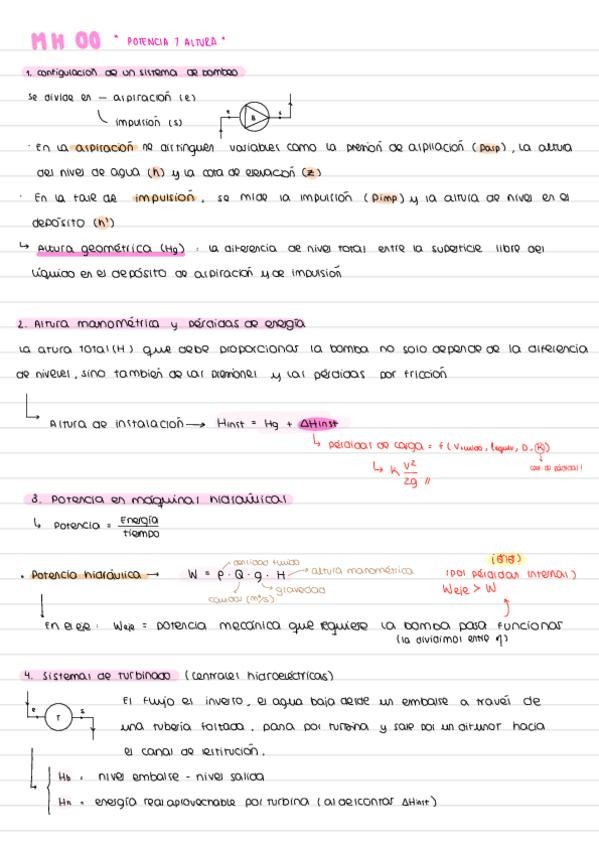 MH 00 " POTENCIA Y ALTURA "
1. configulacion de un sistema de bombeo
se divide en — aspiración (e)
impulsión (s)
e B s
· En la aspiración se distinguen variables como la presión de aspiración (Pasp), la altura
del nivel de agua (h) y la cota de elevación (z)
· En la fase de impulsión, se mide la impulsión (Pimp) y la altura de nivel en el
depósito (h')
↳ Altura geométrica (Hg) : la diferencia de nivel total entre la superficie libre del
líquido en el depósito de aspiración y de impulsión
2. Altura manométrica y pérdidas de energía
la altura total (H) que debe proporcionar la bomba no solo depende de la diferencia
de niveles, sino también de las presiones y las pérdidas por fricción
Altura de instalación → Hinst = Hg + ΔHinst
↳ pérdidas de carga = f (Vfluido, Lequiv, D, K)
↳ K v²/2g //
coef de pérdidas!
3. Potencia en máquinas hidráulicas
↳ Potencia = Energía/tiempo
· Potencia hidráulica → W = ρ · Q · g · H → altura manométrica
densidad fluido
gravedad
caudal (m³/s)
(por pérdidas internas)
Weje > W
En el eje : Weje = potencia mecánica que requiere la bomba para funcionar
(la dividimos entre η)
4. Sistemas de turbinado (centrales hidroeléctricas)
e T s
El flujo es inverso, el agua baja desde un embalse a través de
una tubería forzada, pasa por turbina y sale por un difusor hacia
el canal de restitución.
Hb = nivel embalse - nivel salida
Hn = energía real aprovechable por turbina (al descontar ΔHinst)